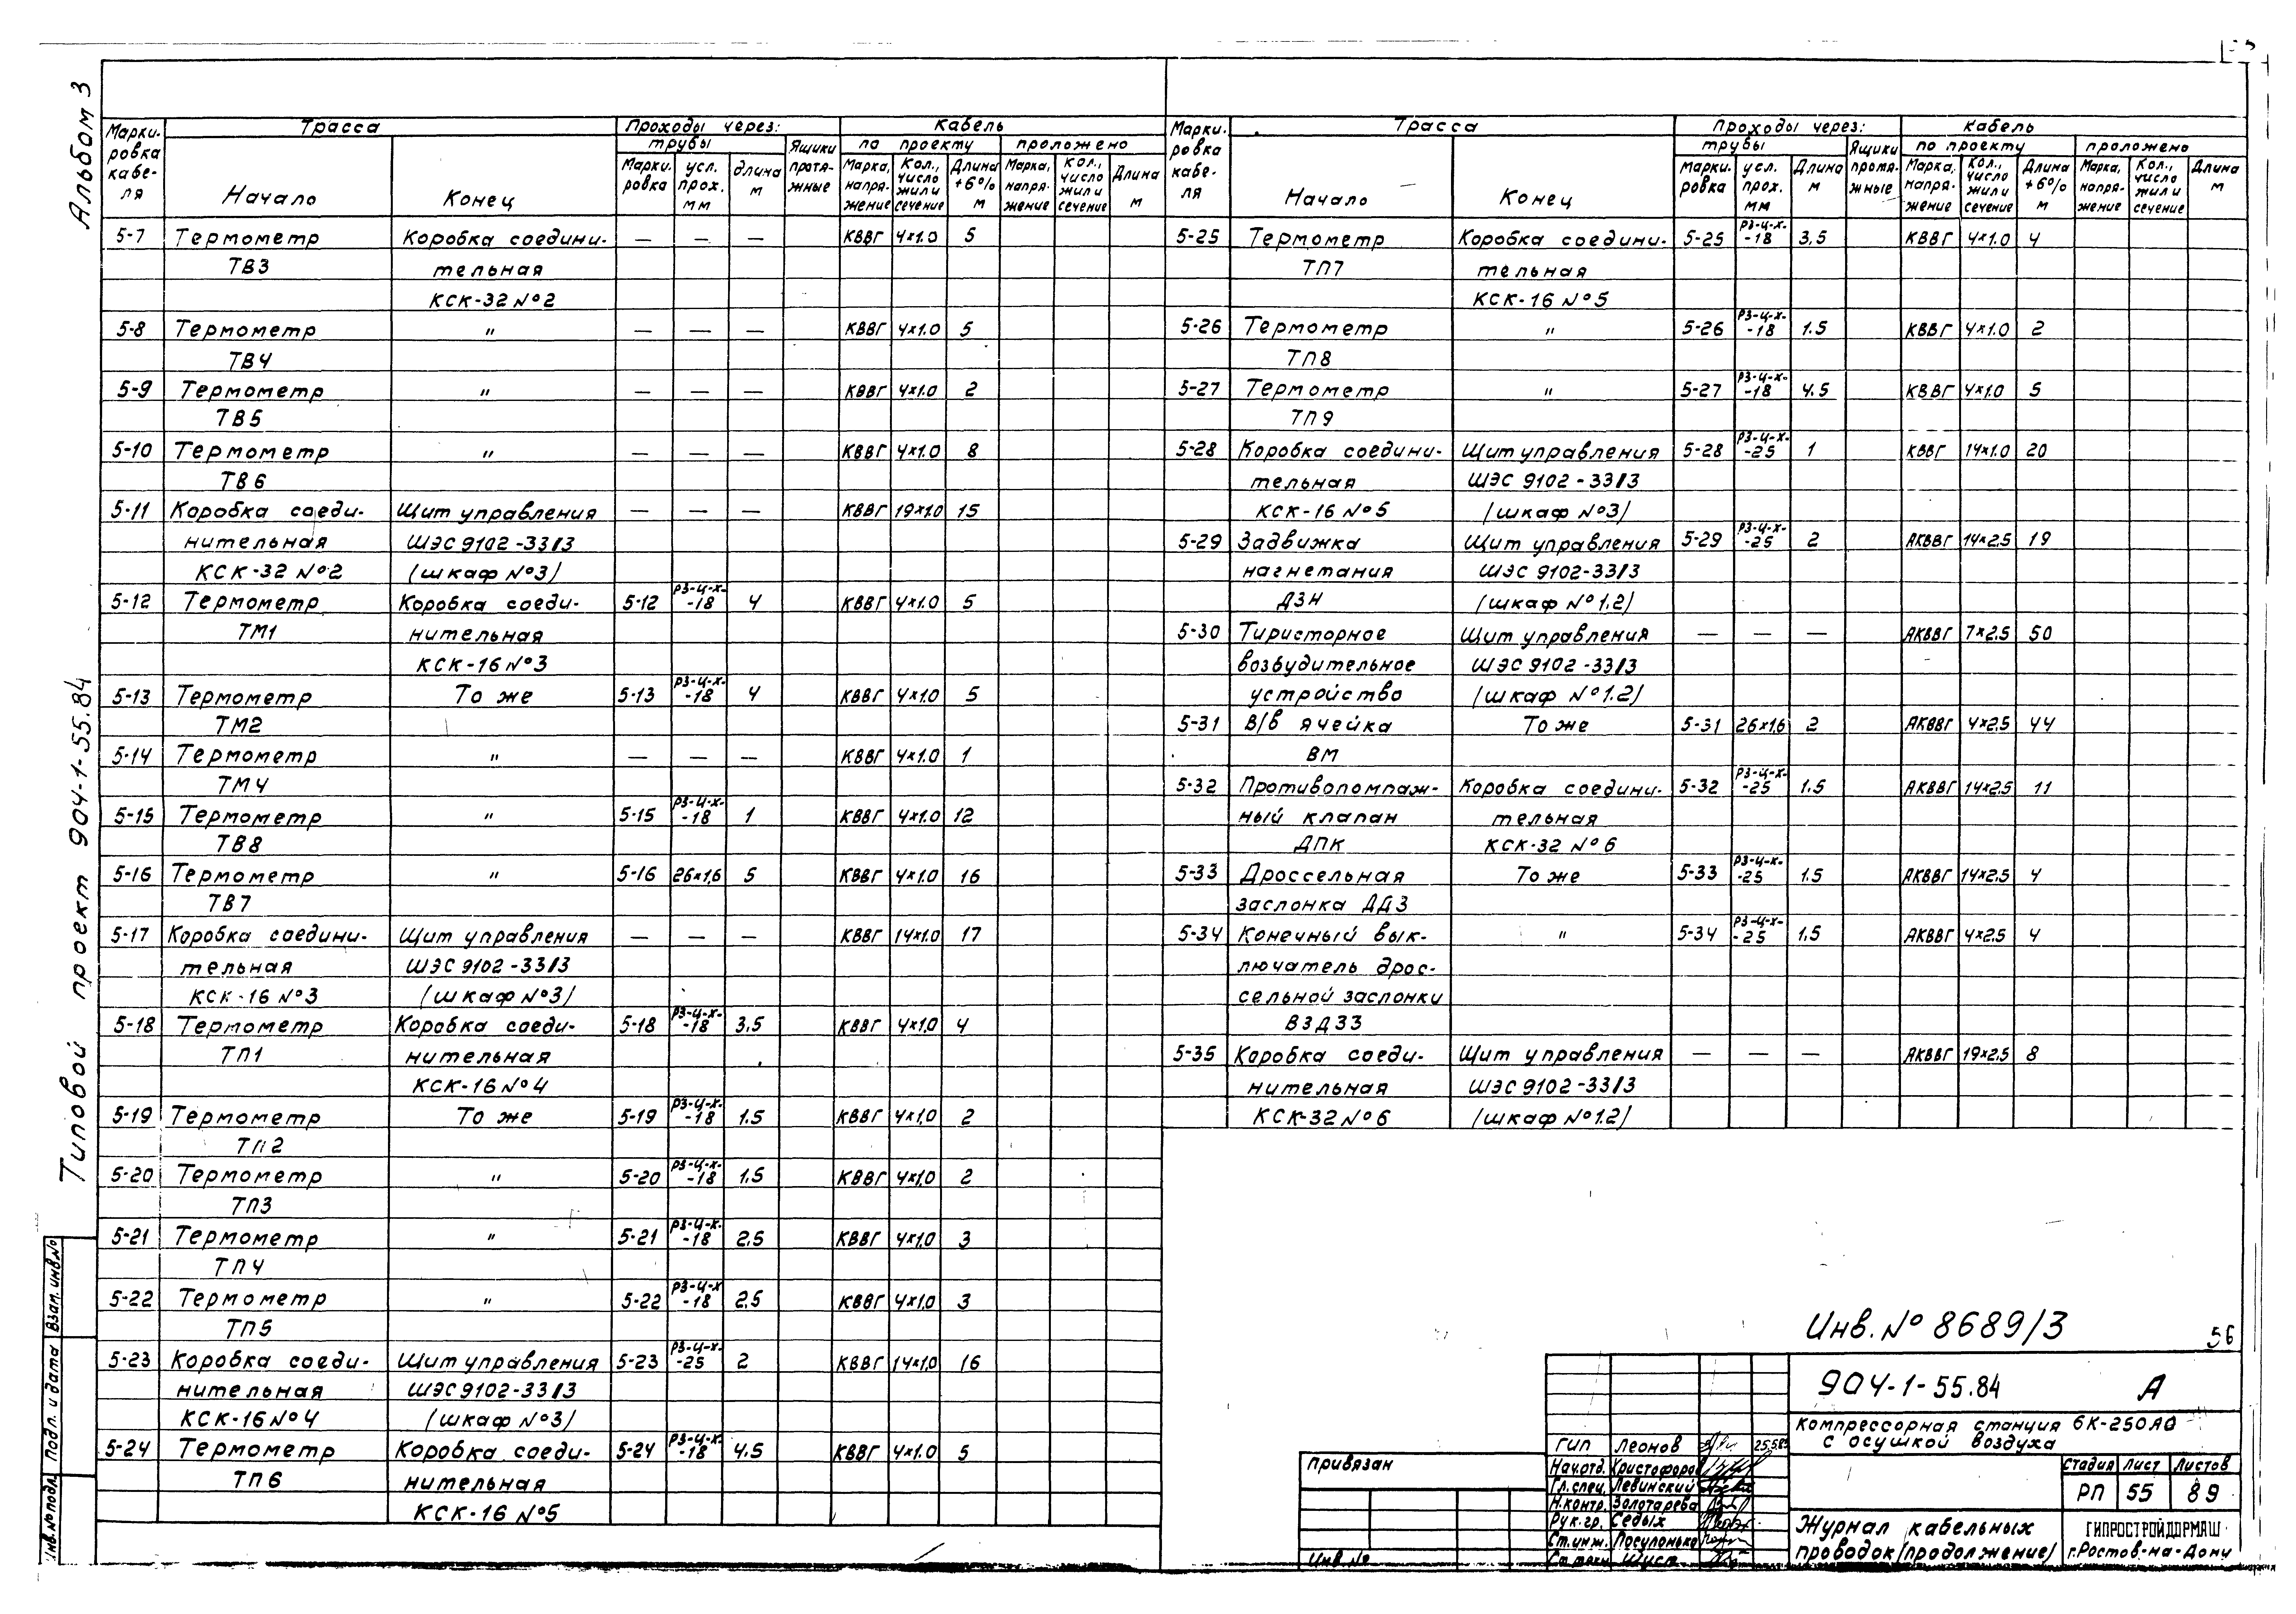 Альбом 3
Типовой проект 904-1-55.84
Взам. инв.№
Подп. и дата
Инв.№подл.
Марки-ровка кабе-ля | Трасса | Проходы через: | Кабель
трубы | Ящики протя-жные | по проекту | проложено
Начало | Конец | Марки-ровка | усл. прох. мм | длина м | Марка, напря-жение | Кол., число жил и сечение | Длина +6% м | Марка, напря-жение | Кол., число жил и сечение | Длина м
5-7 Термометр Коробка соедини- — — — КВВГ 4×1.0 5
ТВ3 тельная
КСК-32 №2
5-8 Термометр " — — — КВВГ 4×1.0 5
ТВ4
5-9 Термометр " — — — КВВГ 4×1.0 2
ТВ5
5-10 Термометр " — — — КВВГ 4×1.0 8
ТВ6
5-11 Коробка соеди- Щит управления — — — КВВГ 19×1.0 15
нительная ШЭС 9102-33/3
КСК-32 №2 (шкаф №3)
5-12 Термометр Коробка соеди- 5-12 РЗ-Ц-Х--18 4 КВВГ 4×1.0 5
ТМ1 нительная
КСК-16 №3
5-13 Термометр То же 5-13 РЗ-Ц-Х--18 4 КВВГ 4×1.0 5
ТМ2
5-14 Термометр " — — — КВВГ 4×1.0 1
ТМ4
5-15 Термометр " 5-15 РЗ-Ц-Х--18 1 КВВГ 4×1.0 12
ТВ8
5-16 Термометр " 5-16 26×1,6 5 КВВГ 4×1.0 16
ТВ7
5-17 Коробка соедини- Щит управления — — — КВВГ 14×1.0 17
тельная ШЭС 9102-33/3
КСК-16 №3 (шкаф №3)
5-18 Термометр Коробка соеди- 5-18 РЗ-Ц-Х--18 3.5 КВВГ 4×1,0 4
ТП1 нительная
КСК-16 №4
5-19 Термометр То же 5-19 РЗ-Ц-Х--18 1.5 КВВГ 4×1,0 2
ТП2
5-20 Термометр " 5-20 РЗ-Ц-Х--18 1.5 КВВГ 4×1,0 2
ТП3
5-21 Термометр " 5-21 РЗ-Ц-Х--18 2.5 КВВГ 4×1,0 3
ТП4
5-22 Термометр " 5-22 РЗ-Ц-Х-18 2.5 КВВГ 4×1,0 3
ТП5
5-23 Коробка соеди- Щит управления 5-23 РЗ-Ц-Х--25 2 КВВГ 14×1,0 16
нительная ШЭС 9102-33/3
КСК-16 №4 (шкаф №3)
5-24 Термометр Коробка соеди- 5-24 РЗ-Ц-Х-18 4.5 КВВГ 4×1.0 5
ТП6 нительная
КСК-16 №5
Марки-ровка кабе-ля | Трасса | Проходы через: | Кабель
трубы | Ящики протя-жные | по проекту | проложено
Начало | Конец | Марки-ровка | усл. прох. мм | Длина м | Марка, напря-жение | Кол., число жил и сечение | Длина +6% м | Марка, напря-жение | Кол., число жил и сечение | Длина м
5-25 Термометр Коробка соедини- 5-25 РЗ-Ц-Х--18 3,5 КВВГ 4×1.0 4
ТП7 тельная
КСК-16 №5
5-26 Термометр " 5-26 РЗ-Ц-Х--18 1.5 КВВГ 4×1.0 2
ТП8
5-27 Термометр " 5-27 РЗ-Ц-Х--18 4.5 КВВГ 4×1.0 5
ТП9
5-28 Коробка соедини- Щит управления 5-28 РЗ-Ц-Х--25 1 КВВГ 14×1.0 20
тельная ШЭС 9102-33/3
КСК-16 №5 (шкаф №3)
5-29 Задвижка Щит управления 5-29 РЗ-Ц-Х--25 2 АКВВГ 14×2,5 19
нагнетания ШЭС 9102-33/3
ДЗН (шкаф №1.2)
5-30 Тиристорное Щит управления — — — АКВВГ 7×2.5 50
возбудительное ШЭС 9102-33/3
устройство (шкаф №1.2)
5-31 В/в ячейка То же 5-31 26×1,6 2 АКВВГ 4×2,5 44
ВМ
5-32 Противопомпаж- Коробка соедини- 5-32 РЗ-Ц-Х--25 1.5 АКВВГ 14×2,5 11
ный клапан тельная
ДПК КСК-32 №6
5-33 Дроссельная То же 5-33 РЗ-Ц-Х--25 1.5 АКВВГ 14×2,5 4
заслонка ДДЗ
5-34 Конечный вык- " 5-34 РЗ-Ц-Х--25 1.5 АКВВГ 4×2,5 4
лючатель дрос-
сельной заслонки
ВЗДЗЗ
5-35 Коробка соеди- Щит управления — — — АКВВГ 19×2.5 8
нительная ШЭС 9102-33/3
КСК-32 №6 (шкаф №1.2)
Инв. № 8689/3
56
904-1-55.84 А
Компрессорная станция 6К-250АО
с осушкой воздуха
ГИП Леонов
Нач.отд. Христофоров
Гл.спец. Левинский
Н.контр. Золотарева
Рук.гр. Седых
Ст.инж.
Ст.техн. Шуст
Привязан
Инв №
Стадия Лист Листов
РП 55 89
Журнал кабельных
проводок (продолжение)
ГИПРОСТРОЙДОРМАШ
г.Ростов-на-Дону